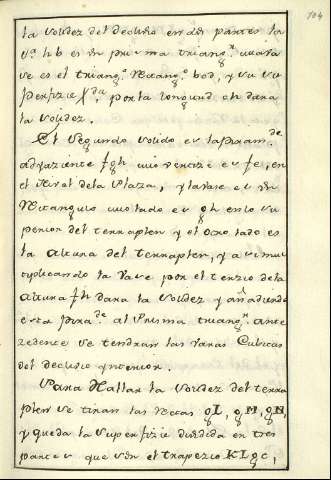 104
la solidez del declivio en dos partes la
1ª h b es un prisma triangᵣ cuia ba
se es el triangᵒ rectangᵒ bod, y su su
perfizie
por la longitud ch dara
la solidez.
El segundo solido es la piram.de
adyazente fgh cuio vertize es fe, en
el nivel de la Plaza, y la vase es un
Rectangulo cuio lado es gh en lo su
perior del terraplen y el otro lado es
la altura del terraplen, y asi mul
tiplicando la vase por el terzio de la
altura fh dara la solidez y añadiendo
esta pirade al Prisma triangr ante
zedente se tendran las varas Cubicas
del declivio ynterior.
Para Hallar la solidez del terra
plen se tiran las rectas gL, gM, gN,
y queda la superfizie dividida en tres
partes que son el trapezio KLgc,